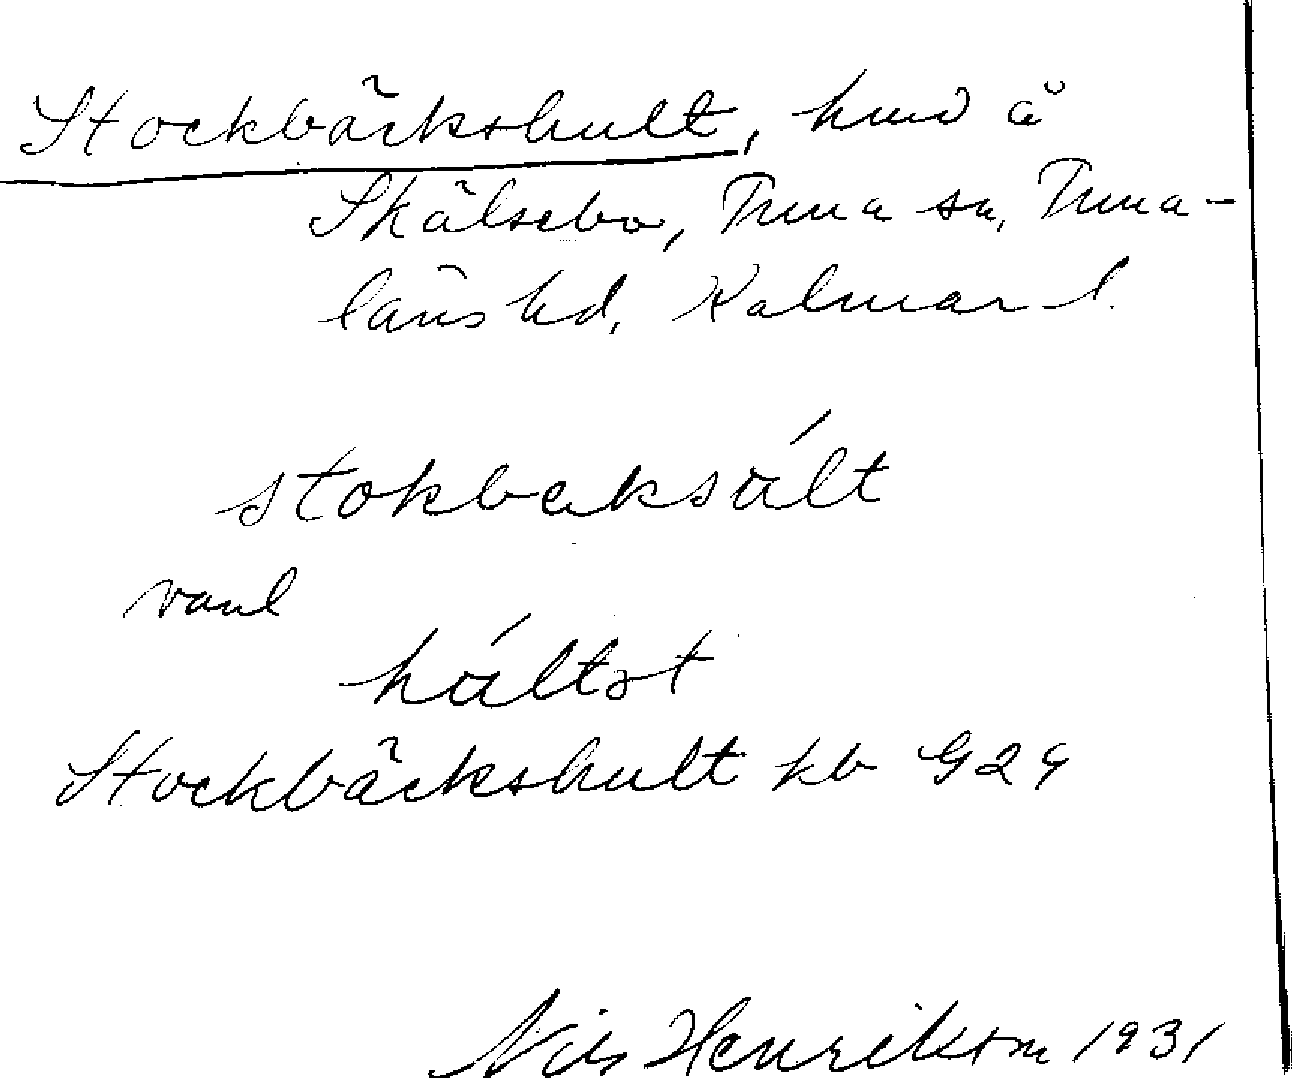 Stockbäckshult, hmd å
Skälsebo, Tuna sn, Tuna-
läns hd, Kalmar l.
stokbeksált
vanl
háltət
Stockbäckshult kb G29
Nils Henrikson 1931